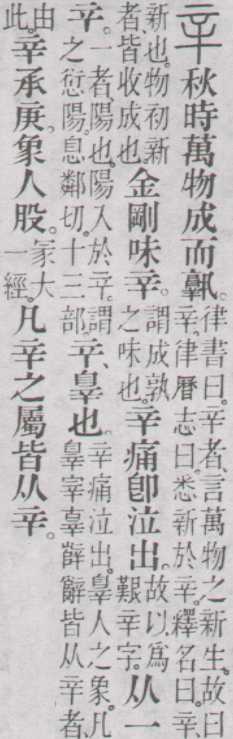 辛秋時萬物成而孰。律書曰。辛者、言萬物之新生。故曰辛。律曆志曰。悉新於辛。釋名曰。辛、
新也。物初新者、皆收成也。金剛味辛。謂成孰之味也。辛痛卽泣出。故以爲艱辛字。从一
䇂。一者、陽也。陽入於䇂。謂之愆陽。息鄰切。十三部。辛、辠也。辛痛泣出。辠人之象。凡辠宰辜辥辭皆从辛者、
由此。辛承庚。象人股。冡大一經。凡辛之屬皆从辛。